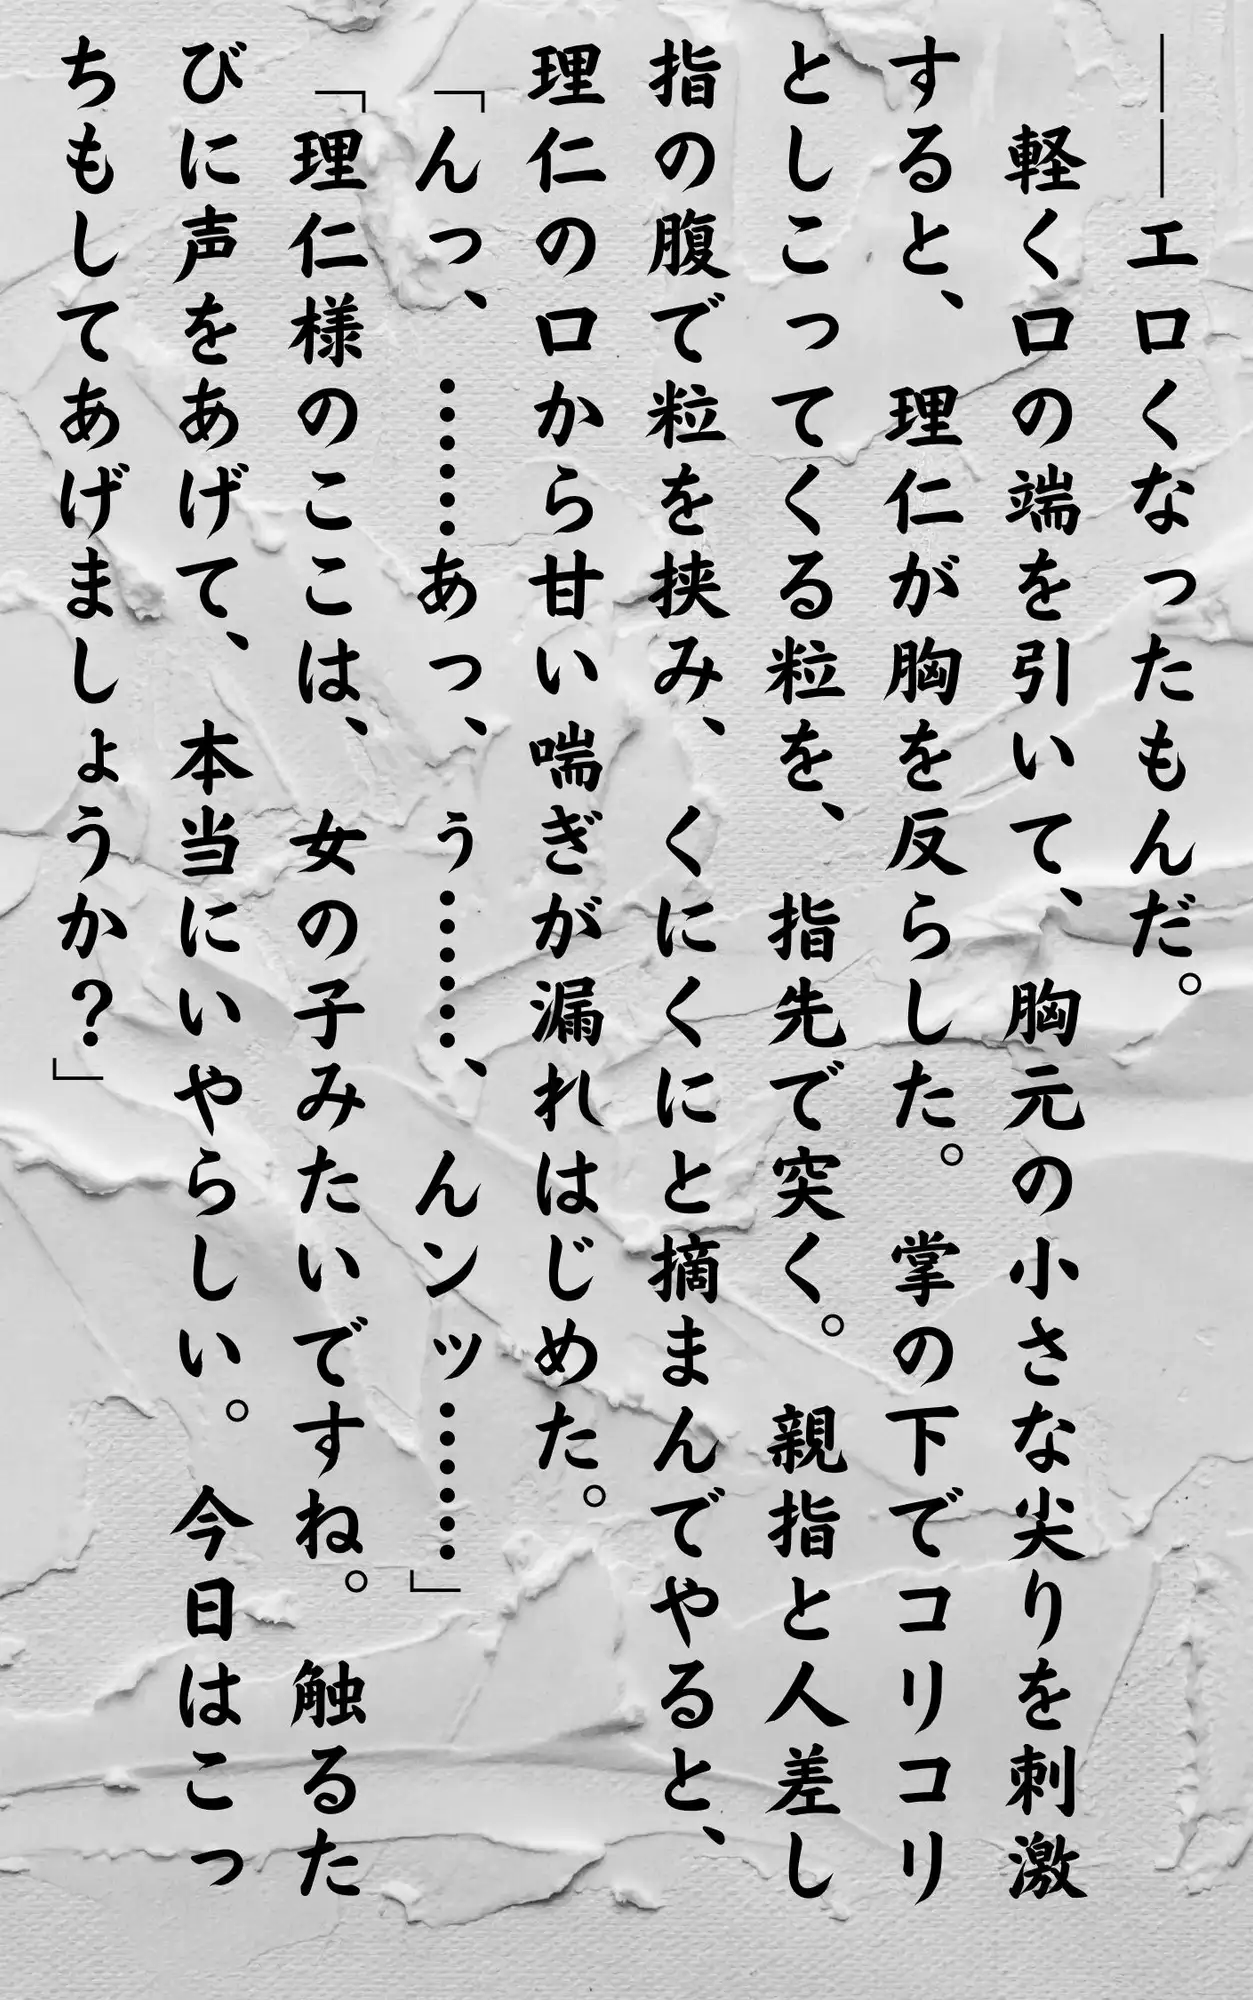 ――エロくなったもんだ。
　軽く口の端を引いて、胸元の小さな尖りを刺激
すると、理仁が胸を反らした。掌の下でコリコリ
としこってくる粒を、指先で突く。親指と人差し
指の腹で粒を挟み、くにくにと摘まんでやると、
理仁の口から甘い喘ぎが漏れはじめた。
「んっ、……あっ、ぅ……、んンッ……」
「理仁様のここは、女の子みたいですね。触るた
びに声をあげて、本当にいやらしい。今日はこっ
ちもしてあげましょうか？」